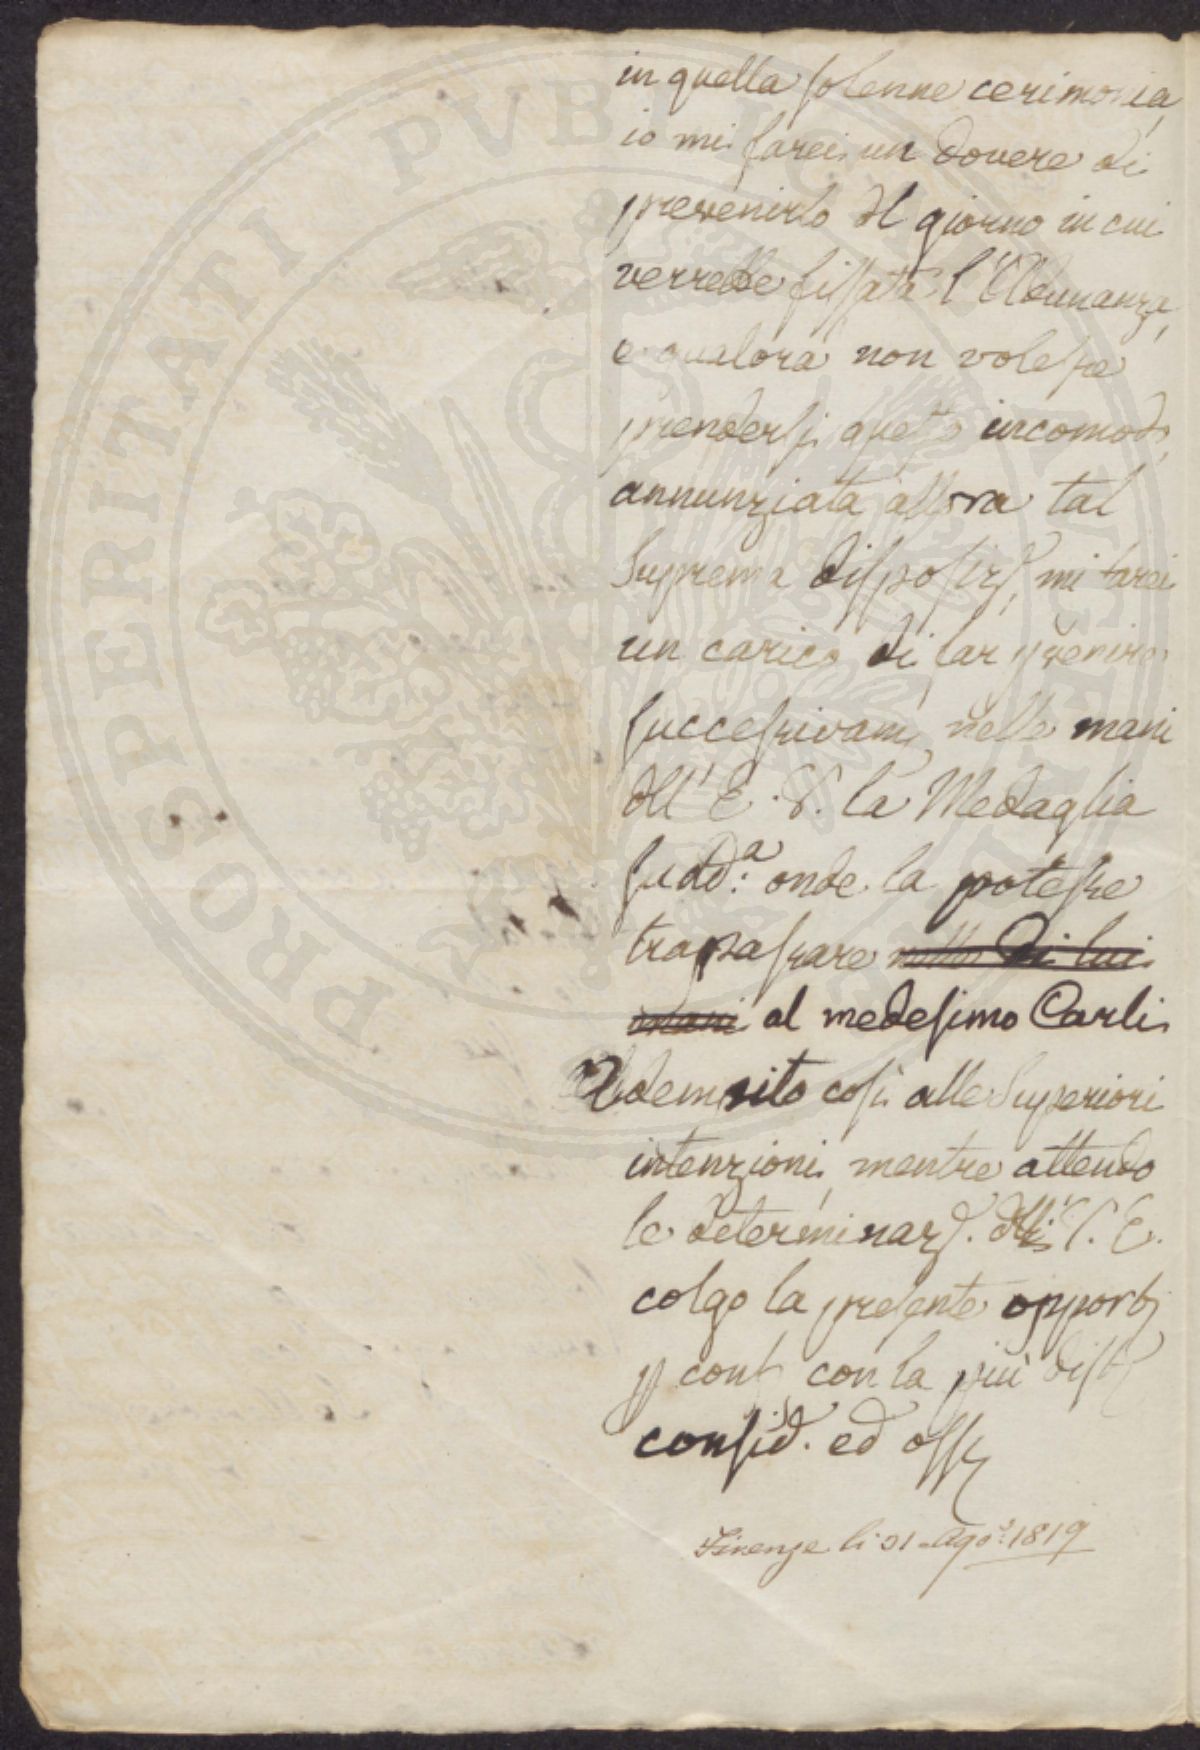 in quella solenne cerimonia,
io mi farei un dovere di
prevenirlo del giorno in cui
verrebbe fissata l'Adunanza,
e qualora non volesse
prendersi questo incomodo,
annunziata allora tal
Suprema disposiz., mi farei
un carico di far pvenire
successivam. nelle mani
dell' E. V. la Medaglia
sudd:a onde la potesse
trapassare nelle di lui
mani al medesimo Carli.
Adempito così alle Superiori
intenzioni, mentre attendo
le determinaz. dell' E.
colgo la presente opport
p conf con la più dist
consid. ed oss
Firenze li 31 Ago: 1819
PROSPERITATI PVBLICAE